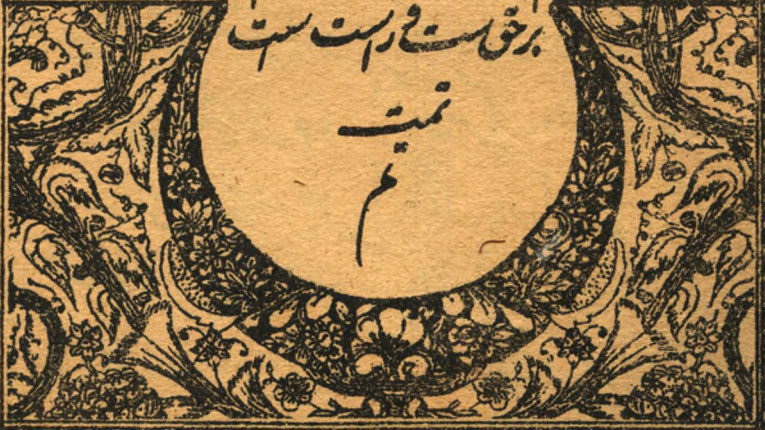 بر حق است و راست است
تمت
تم